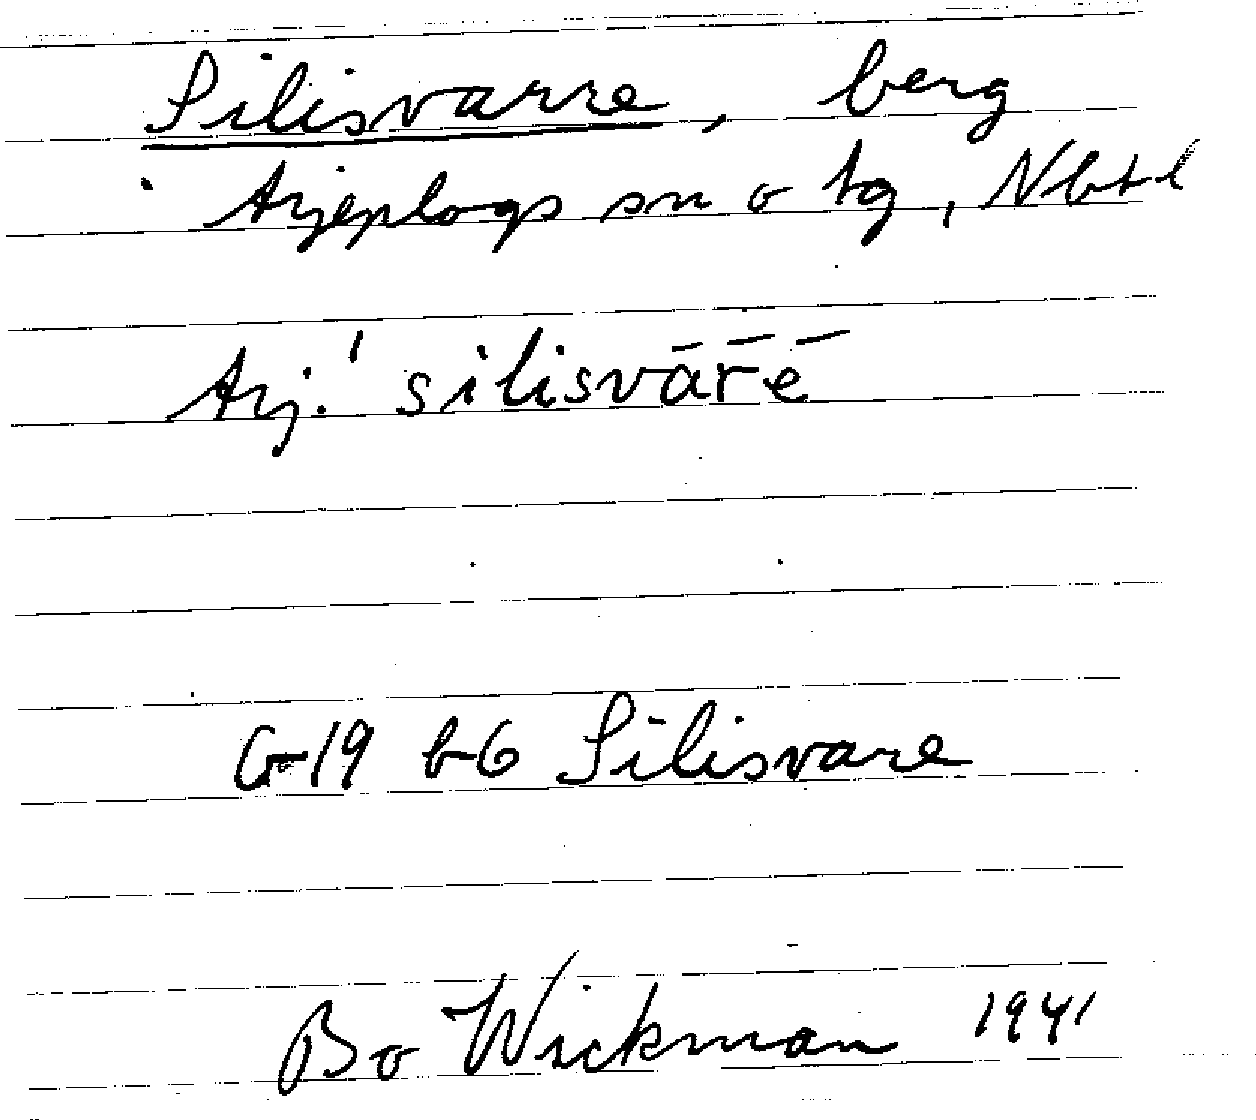 Silisvarre, berg
Arjeplogs sn o tg, Nbtl
Arj.' silisvār̄ē
G-19 b6 Silisvare
Bo Wickman 1941